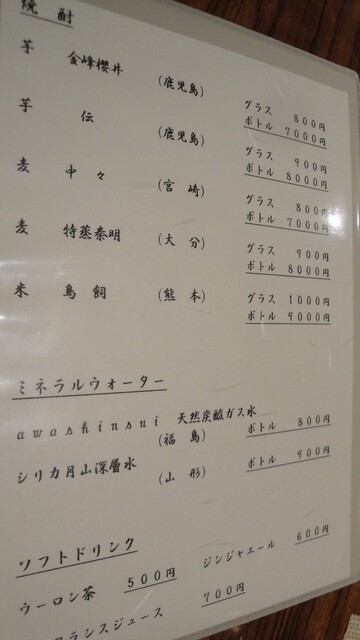 焼酎
芋 金峰櫻井 (鹿児島) グラス 800円
ボトル 7000円
芋 伝 (鹿児島) グラス 900円
ボトル 8000円
麦 中々 (宮崎) グラス 800円
ボトル 7000円
麦 特蒸泰明 (大分) グラス 900円
ボトル 8000円
米 鳥飼 (熊本) グラス 1000円
ボトル 9000円
ミネラルウォーター
awashinsui 天然炭酸ガス水
(福島) ボトル 800円
シリカ月山深層水 (山形) ボトル 900円
ソフトドリンク
ウーロン茶 500円 ジンジャエール 600円
ランスジュース 700円